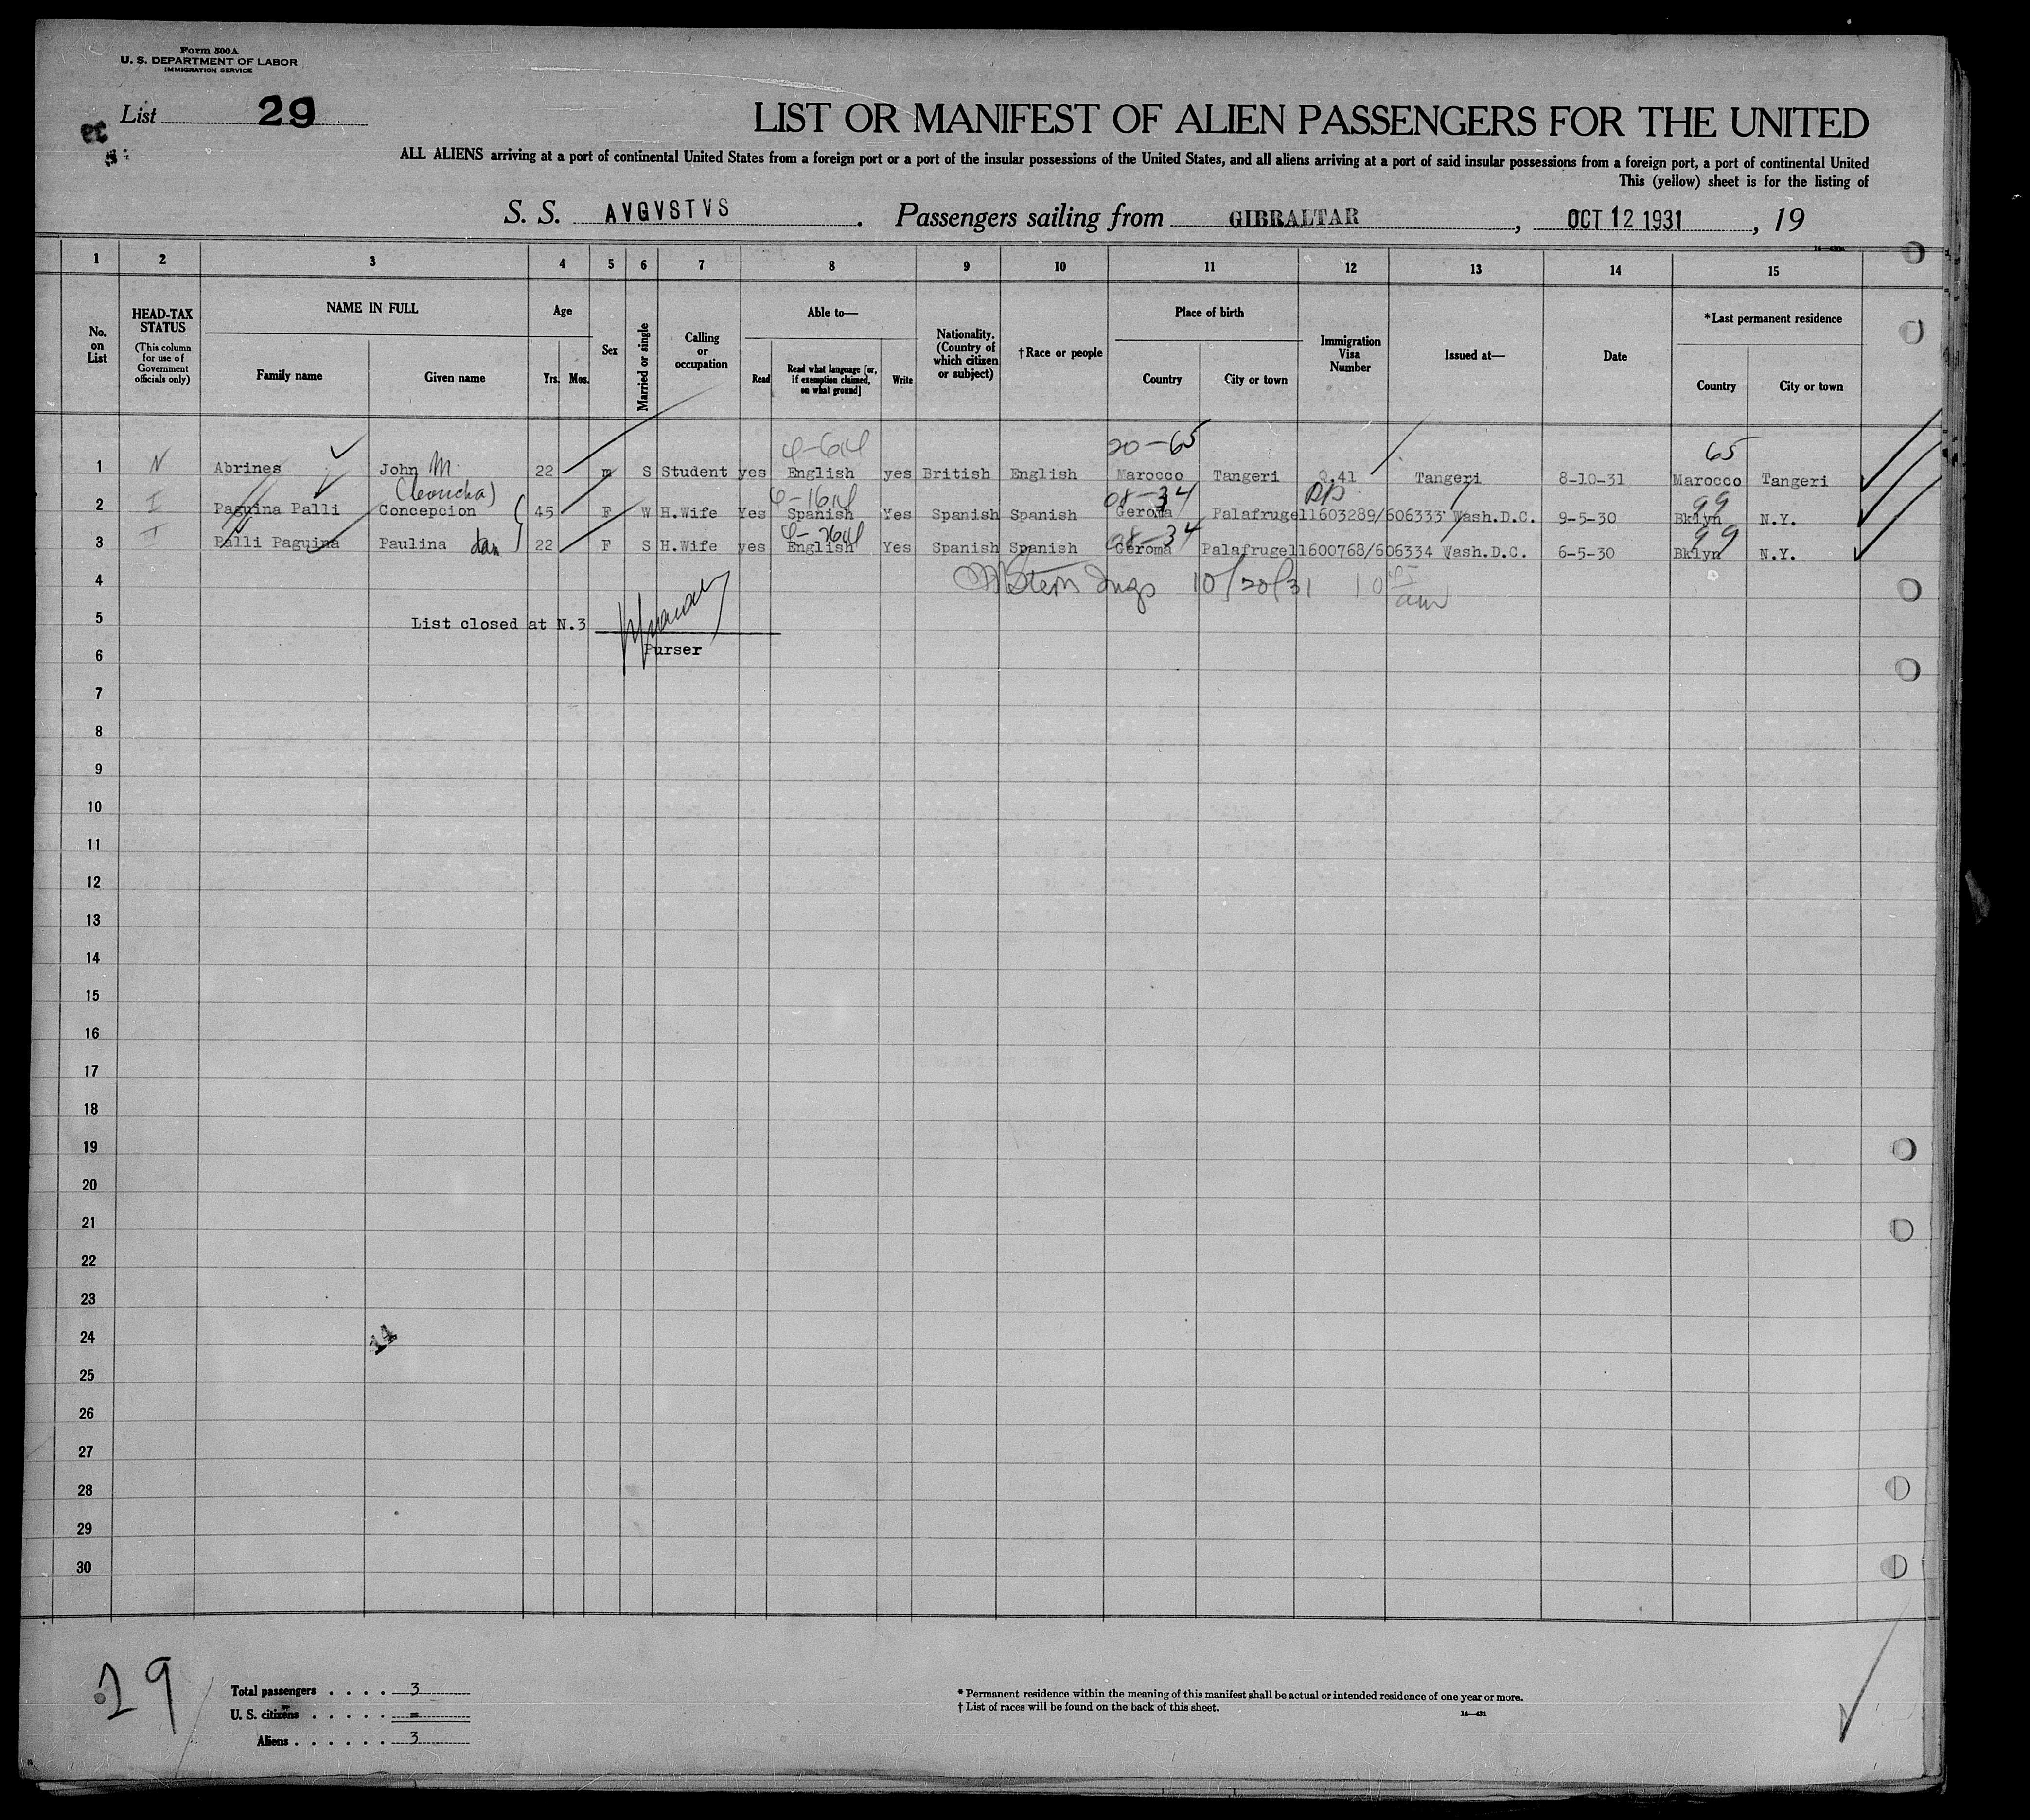 Form 500A
U. S. DEPARTMENT OF LABOR
IMMIGRATION SERVICE
List 29
LIST OR MANIFEST OF ALIEN PASSENGERS FOR THE UNITED
ALL ALIENS arriving at a port of continental United States from a foreign port or a port of the insular possessions of the United States, and all aliens arriving at a port of said insular possessions from a foreign port, a port of continental United
This (yellow) sheet is for the listing of
S. S. AVGVSTVS. Passengers sailing from GIBRALTAR, OCT 12 1931, 19
1 2 3 4 5 6 7 8 9 10 11 12 13 14 15
No. on List
HEAD-TAX STATUS
(This column for use of Government officials only)
NAME IN FULL
Family name
Given name
Age
Yrs. Mos.
Sex
Married or single
Calling or occupation
Able to—
Read
Read what language [or, if exemption claimed, on what ground]
Write
Nationality. (Country of which citizen or subject)
†Race or people
Place of birth
Country
City or town
Immigration Visa Number
Issued at—
Date
*Last permanent residence
Country
City or town
20-65
65
1 N Abrines John M. 22 m S Student yes English yes British English Marocco Tangeri Q.41 Tangeri 8-10-31 Marocco Tangeri
(Concha)
08-34
99
2 I Paguina Palli Concepcion 45 F W H.Wife Yes Spanish Yes Spanish Spanish Geroma Palafrugell 1603289/606333 Wash.D.C. 9-5-30 Bklyn N.Y.
08-34
99
3 I Palli Paguina Paulina dau 22 F S H.Wife yes English Yes Spanish Spanish Geroma Palafrugell 1600768/606334 Wash.D.C. 6-5-30 Bklyn N.Y.
4 10/20/31
5 List closed at N.3
6 Purser
7
8
9
10
11
12
13
14
15
16
17
18
19
20
21
22
23
24 14
25
26
27
28
29
30
29
Total passengers . . . . 3
U. S. citizens . . . . . =
Aliens . . . . . . 3
* Permanent residence within the meaning of this manifest shall be actual or intended residence of one year or more.
† List of races will be found on the back of this sheet.
14—431